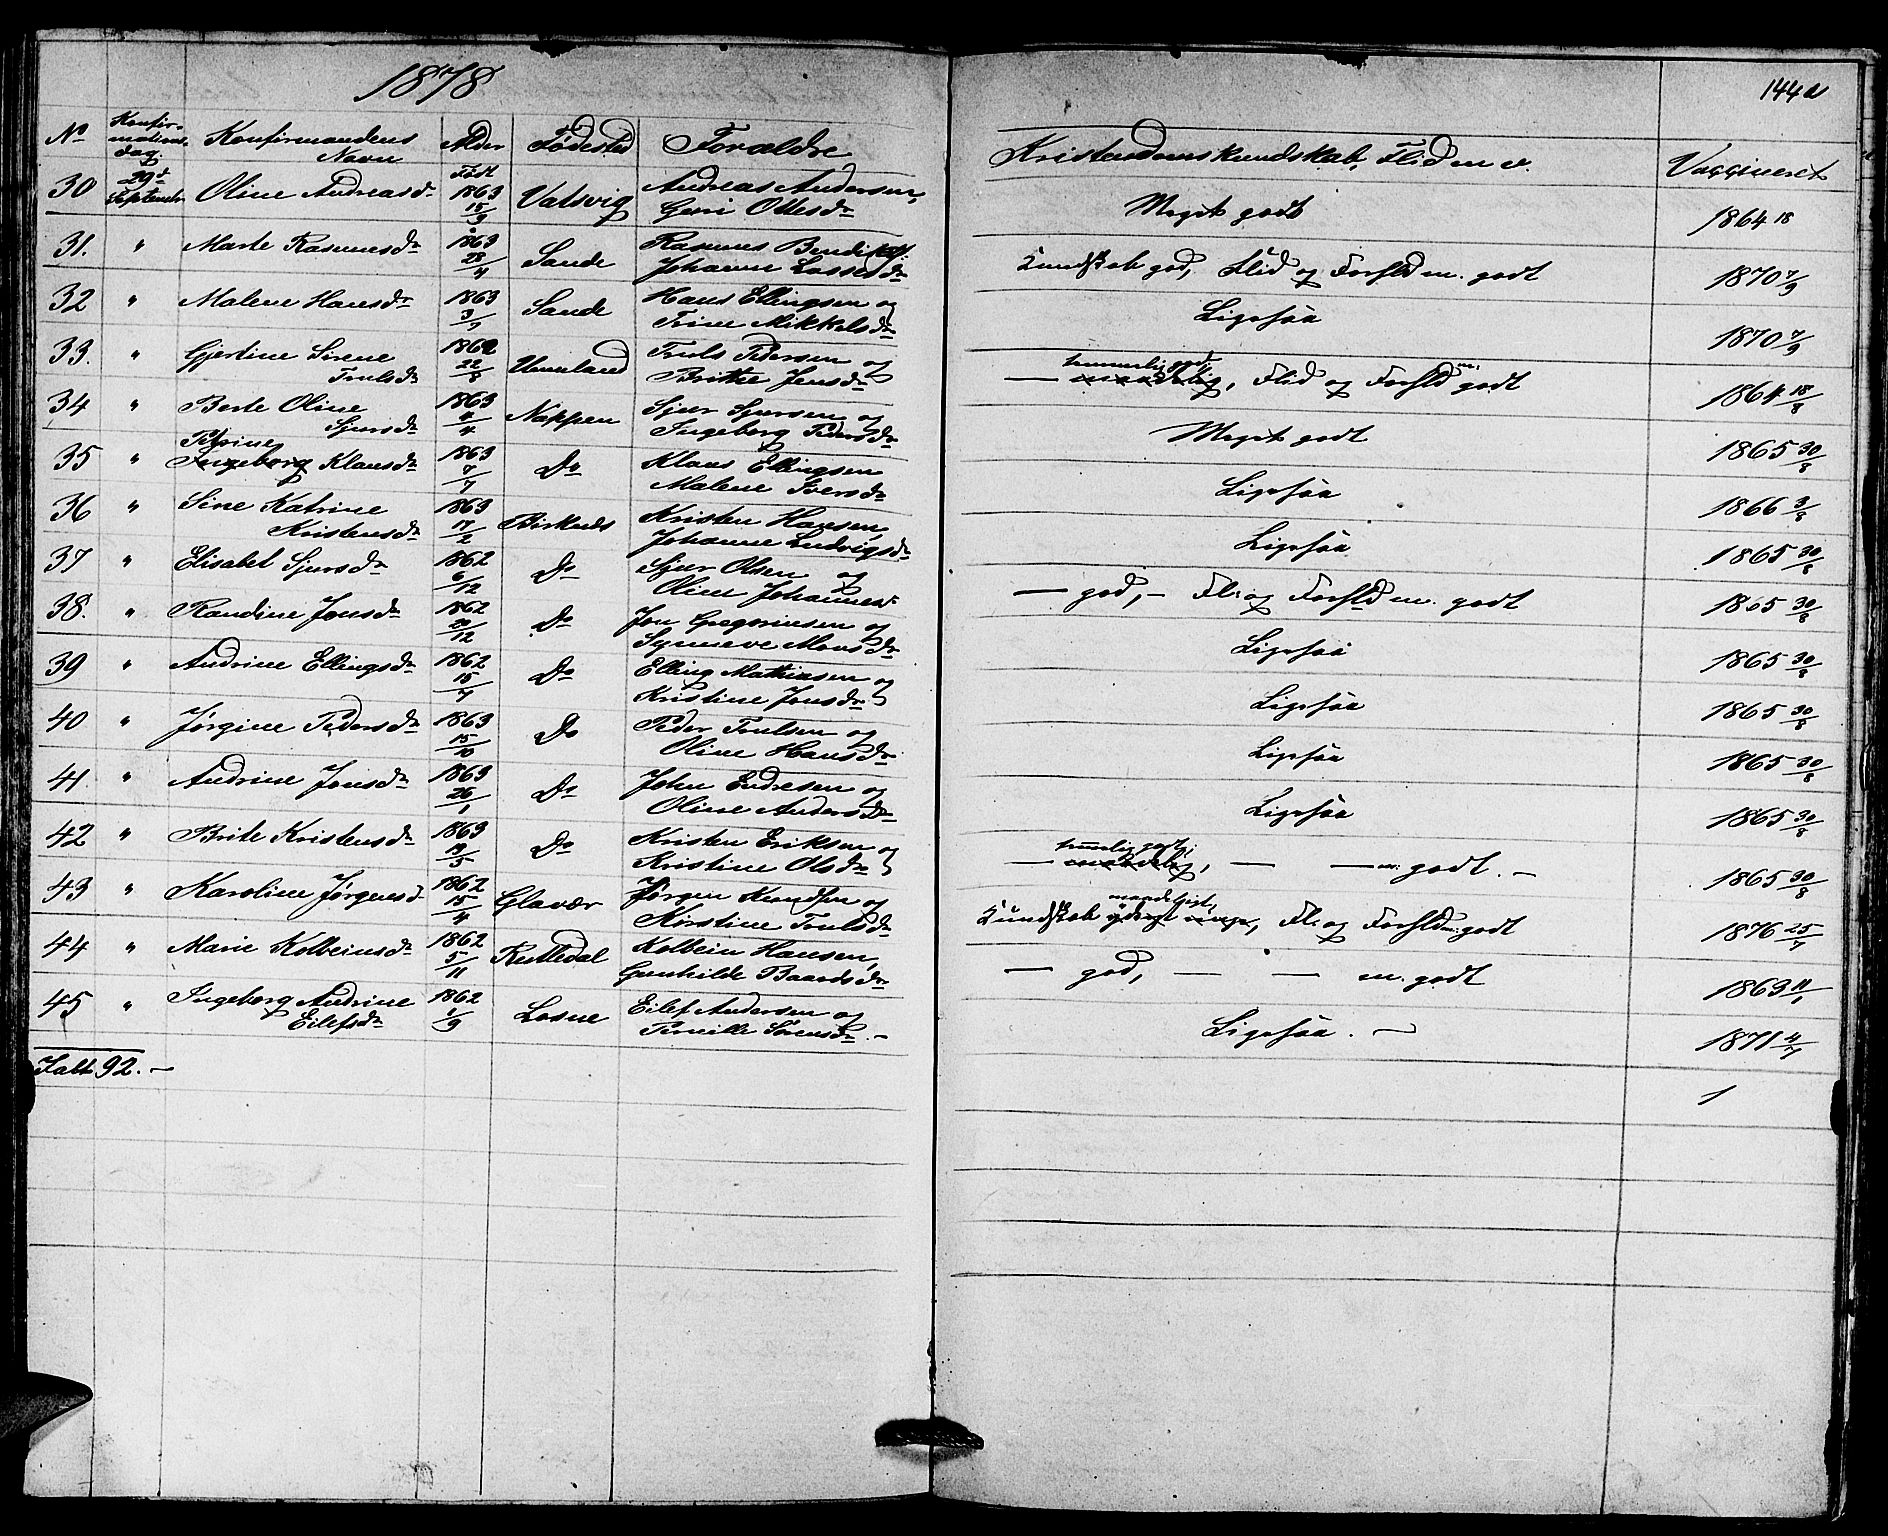 1878
144a
No Konfirmations-dag. Konfirmandens Navn Alder Fødested Forældre Kristendomskundskab, Flid m. v. Vaccineret
Født
30 29d September Oline Andreasdr 1863 15/9 Vatsvig Andreas Andersen, Guri Ottesdr Meget godt 1864 18
31. " Marte Rasmusdr 1863 28/4 Sande Rasmus Bendiks. Johanne Lassesdr Kundskab god, Flid og Forhld m. godt 1870 7/9
32 " Malene Hansdr 1863 3/7 Sande Hans Ellingsen og Trine Mikkelsdr Ligesaa 1870 7/9
33. " Gjertine Sirene Trulsdr 1862 22/8 Truls Pedersen og Britte Jensdr — temmelig god, maadelig, Flid og Forhld m: godt 1864 18/8
34 " Berte Oline Sjursdr 1863 4/4 Nappen Sjur Sjursen og Ingeborg Pedersdr Meget godt 1865 30/8
35 " Petrine Ingeborg Klausdr 1863 7/7 Do Klaus Ellingsen Malene Iversdr Ligesaa 1866 3/8
36 " Sine Katrine Kristensdr 1863 17/2 Birknæs Kristen Hansen, Johanne Ludvigsdr Ligesaa 1865 30/8
37 " Elisabet Sjursdr 1862 6/12 Do Sjur Olsen og Oline Johannesd. — god, – Fl: og Forhld m. godt 1865 30/8
38. " Randine Jonsdr 1862 29/12 Do Jon Gregoriusen og Synneve Monsdr Ligesaa 1865 30/8
39 " Andrine Ellingsdr 1862 15/7 Do Elling Mathiasen og Kristine Jonsdr Ligesaa 1865 30/8
40 " Jørgine Pedersdr 1863 15/10 Do Peder Trulsen og Oline Hansdr Ligesaa 1865 30/8
41. " Andrine Jonsdr 1863 26/1 Do John Endresen og Oline Andersdr Ligesaa 1865 30/8
42 " Brite Kristensdr 1863 19/5 Do Kristen Eriksen og Kristine Olsdr — temmelig godt, maadelig, — — m: godt. – 1865 30/8
43 " Karoline Jørgensd. 1862 15/4 Glavær Jørgen Knudsen og Kirstine Trulsdr Kundskab maadeligt, yderst ringe, Fl: og Forhld m: godt 1876 25/7
44 " Marie Kolbeinsdr 1862 5/11 Rutledal Kolbein Hansen, Gunhilde Baardsdr — god, — — m. godt 1863 11/1
45 " Ingeborg Andrine Eilefsdr 1862 1/9 Losne Eilef Andersen og Pernille Sørensdr. – Ligesaa. – 1871 4/7
Ialt 92. –
1